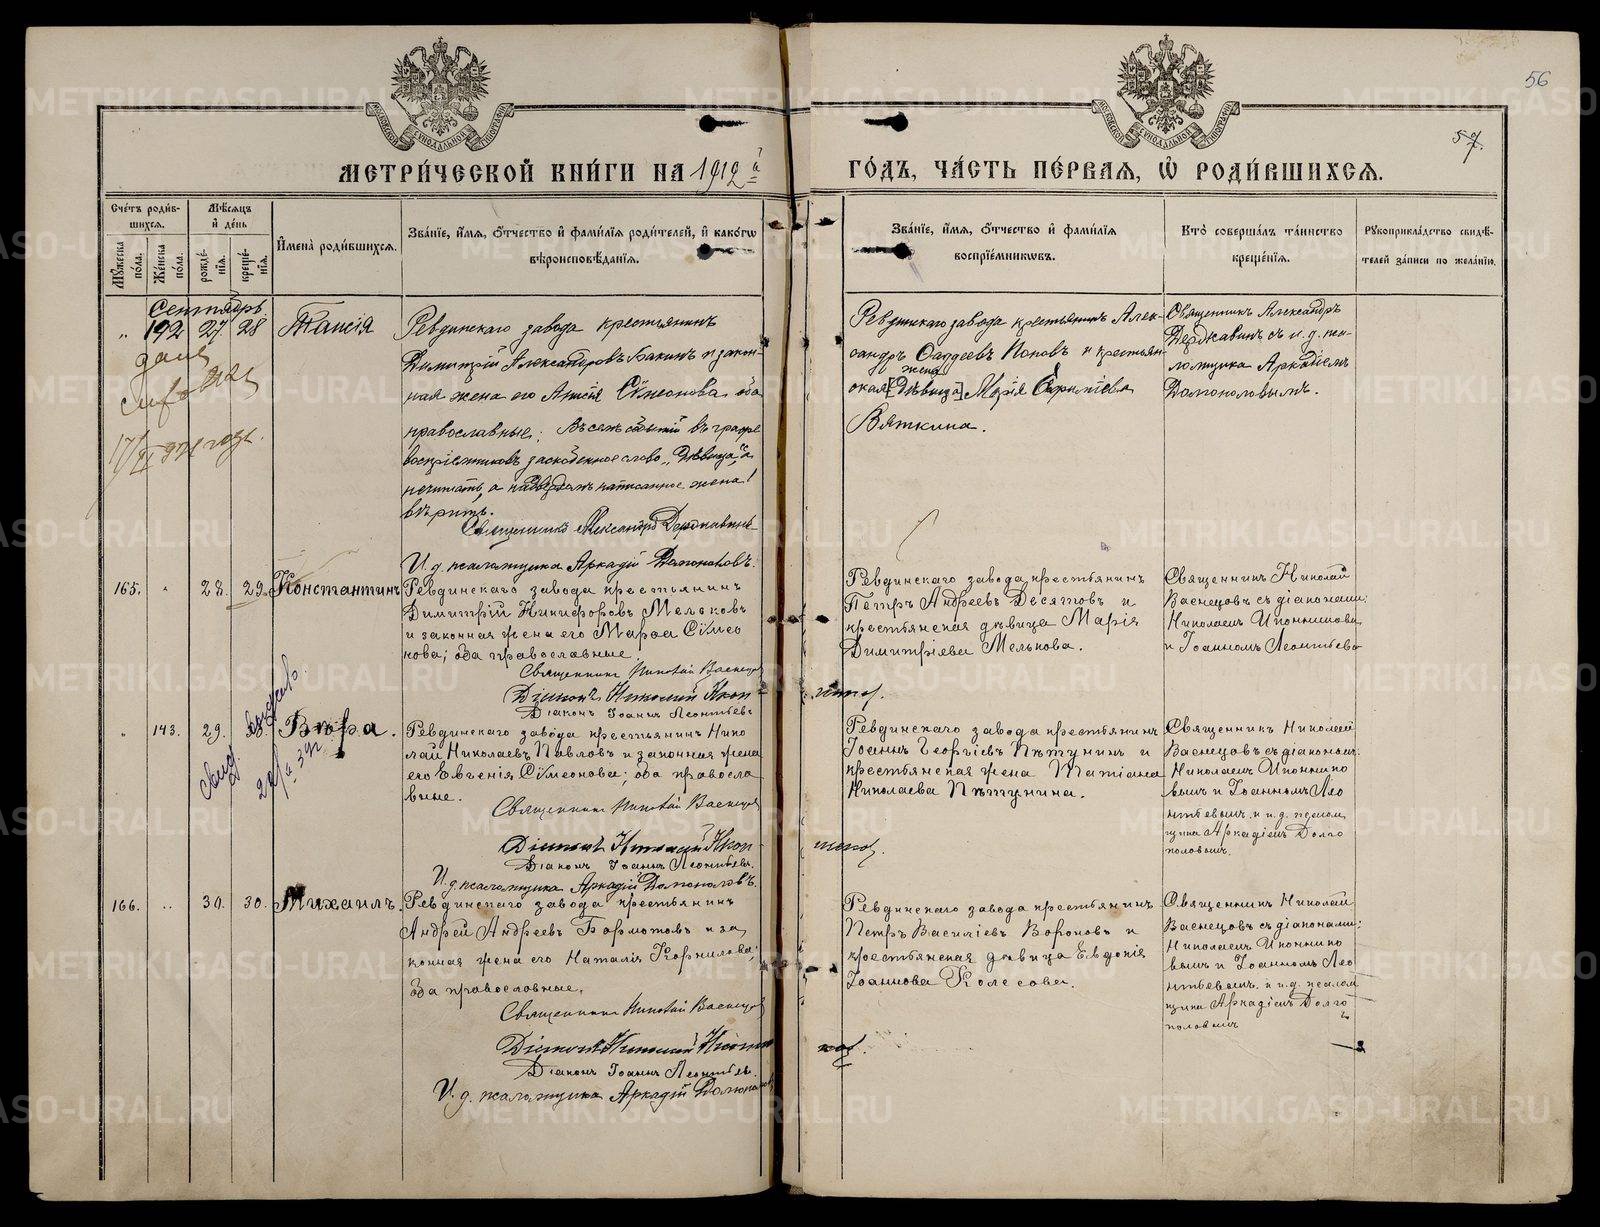 56
57.
МЕТРИ́ЧЕСКОЙ КНИ́ГИ НА 1912 й
ГО́ДЪ, ЧА́СТЬ ПЕ́РВАЯ, Ѽ РОДИ́ВШИХСЯ.
Сче́тъ роди́вшихся.
Му́жеска по́ла.
Же́нска по́ла.
Мѣ́сяцъ и҆ де́нь
рожде́нїя.
креще́нїя.
И҆мена̀ роди́вшихся.
Зва́нїе, и҆́мя, ѻ҆́тчество и҆ фами́лїя роди́телей, и҆ како́гѡ
вѣроисповѣ́данїя.
Зва́нїе, и҆́мя, ѻ҆́тчество и҆ фами́лїя
воспрїе́мникѡвъ.
Кто̀ соверша́лъ та́инство
креще́нїя.
Рꙋкоприкла́дство свидѣ́телей за́писи по жела́нїю.
Сентябрь
„ 192 27 28 Таисія
Ревдинскаго завода крестьянинъ
Димитрій Александровъ Бакинъ и закон-
ная жена его Анисія Сѵмеонова, оба
православные. Въ сей събытій въ графѣ
воспріемниковъ заскобленное слово „дѣвица" а
нечитать, а надверхъ написанное жена!
вѣрить.
Священникъ Александръ Державинъ
И. д. псаломщика Аркадій Долгополовъ.
Ревдинскаго завода крестьянинъ Алек-
сандръ Фаддеевъ Поповъ и крестьян-
жена
ская [дѣвица] Марія
Вяткина.
Священникъ Александръ
Державинъ съ и. д. пса-
ломщика Аркадіемъ
Долгополовымъ.
165. „ 28. 29. Константинъ
Ревдинскаго завода крестьянинъ
Димитрій Никифоровъ Мельковъ
и законная жена его Марѳа Сѵмео
нова; оба православные.
Священникъ Николай Васнецов
Діаконъ Николай Икон
Діаконъ Іоаннъ Леонтьевъ
Ревдинскаго завода крестьянинъ
Петръ Андреевъ Десятовъ и
крестьянская дѣвица Марія
Димитріева Мелькова.
Священникъ Николай
Васнецовъ съ діаконами:
Николаемъ Иконниковы
и Іоанномъ Леонтьево
„ 143. 29. Вѣра.
Ревдинскаго завода крестьянинъ Нико
лай Николаевъ Павловъ и законная жена
его Евгенія Сѵмеонова; оба правосла
вные.
Священникъ Николай Васнецов
Діаконъ Николай Икон
Діаконъ Іоаннъ Леонтьевъ.
И. д. псаломщика Аркадій Долгополовъ.
Ревдинскаго завода крестьянинъ
Іоаннъ Георгіевъ Пѣтунинъ и
крестьянская жена Татіана
Николаева Пѣтунина.
Священникъ Николай
Васнецовъ съ діаконам:
Николаемъ Иконнико
вымъ и Іоанномъ Лео
нтьевымъ. и и. д. псалом
щика Аркадіемъ Долго
половымъ.
166. „ 30. 30. Михаилъ.
Ревдинскаго завода крестьянинъ
Андрей Андреевъ Бормотовъ и за
конная жена его Наталія Корнилова;
оба православные.
Священникъ Николай Васнецов
Діаконъ Николай Иконни
Діаконъ Іоаннъ Леонтьев.
И. д. псаломщика Аркадій Долгополов
Ревдинскаго завода крестьянинъ
Петръ Василіевъ Вороновъ и
крестьянская дѣвица Евдокія
Іоаннова Колесова.
Священникъ Николай
Васнецовъ съ діаконами:
Николаемъ Иконнико
вымъ и Іоанномъ Лео
нтьевымъ. и и. д. псалом
щика Аркадіемъ Долго
половымъ
METRIKI.GASO-URAL.RU